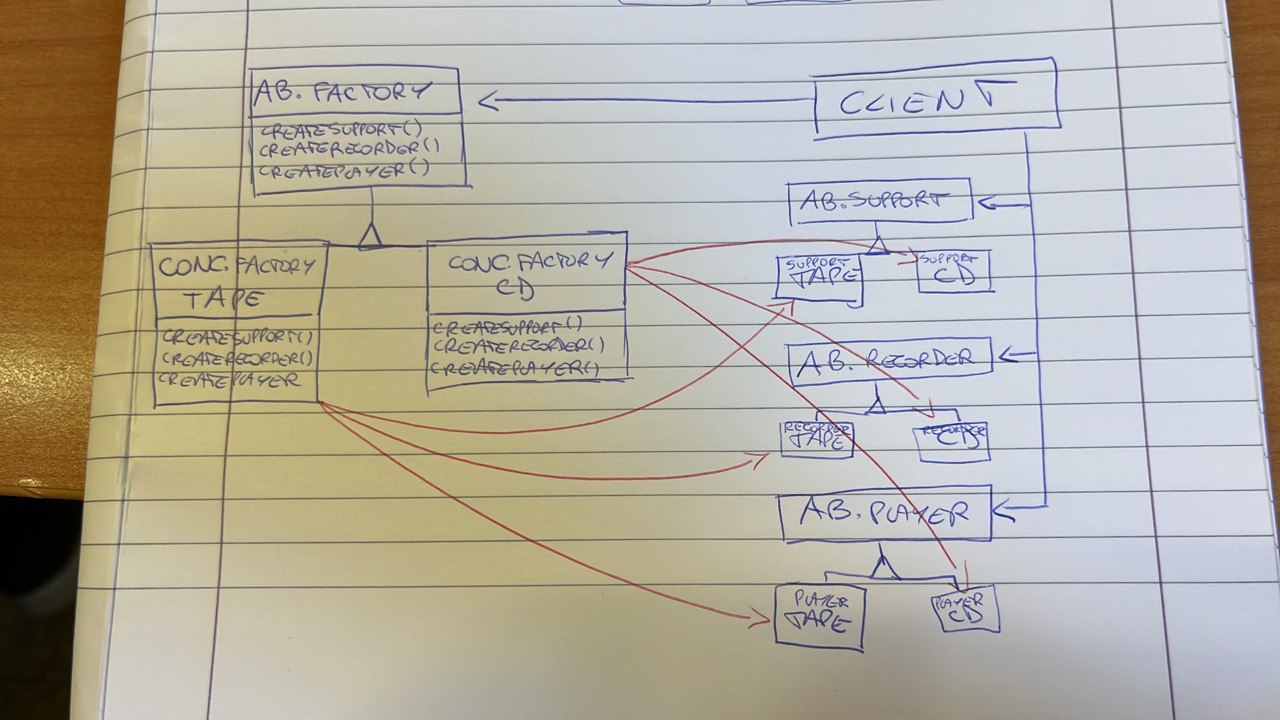 AB. FACTORY
CREATESUPPORT()
CREATERECORDER()
CREATEPLAYER()
CLIENT
AB. SUPPORT
SUPPORT
TAPE
SUPPORT
CD
CONC. FACTORY
TAPE
CREATESUPPORT()
CREATERECORDER()
CREATEPLAYER
CONC. FACTORY
CD
CREATESUPPORT()
CREATERECORDER()
CREATEPLAYER()
AB. RECORDER
RECORDER
TAPE
RECORDER
CD
AB. PLAYER
PLAYER
TAPE
PLAYER
CD